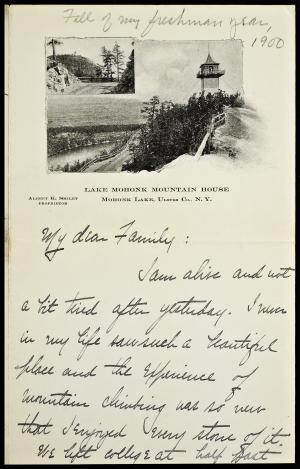 Fall of my freshman year,
1900
LAKE MOHONK MOUNTAIN HOUSE
ALBERT K. SMILEY
PROPRIETOR
MOHONK LAKE, ULSTER CO. N. Y.
My dear Family:
I am alive and not
a bit tired after yesterday. I never
in my life saw such a beautiful
place and the experience of
mountain climbing was so new
that I enjoyed every stone of it.
We left college at half past